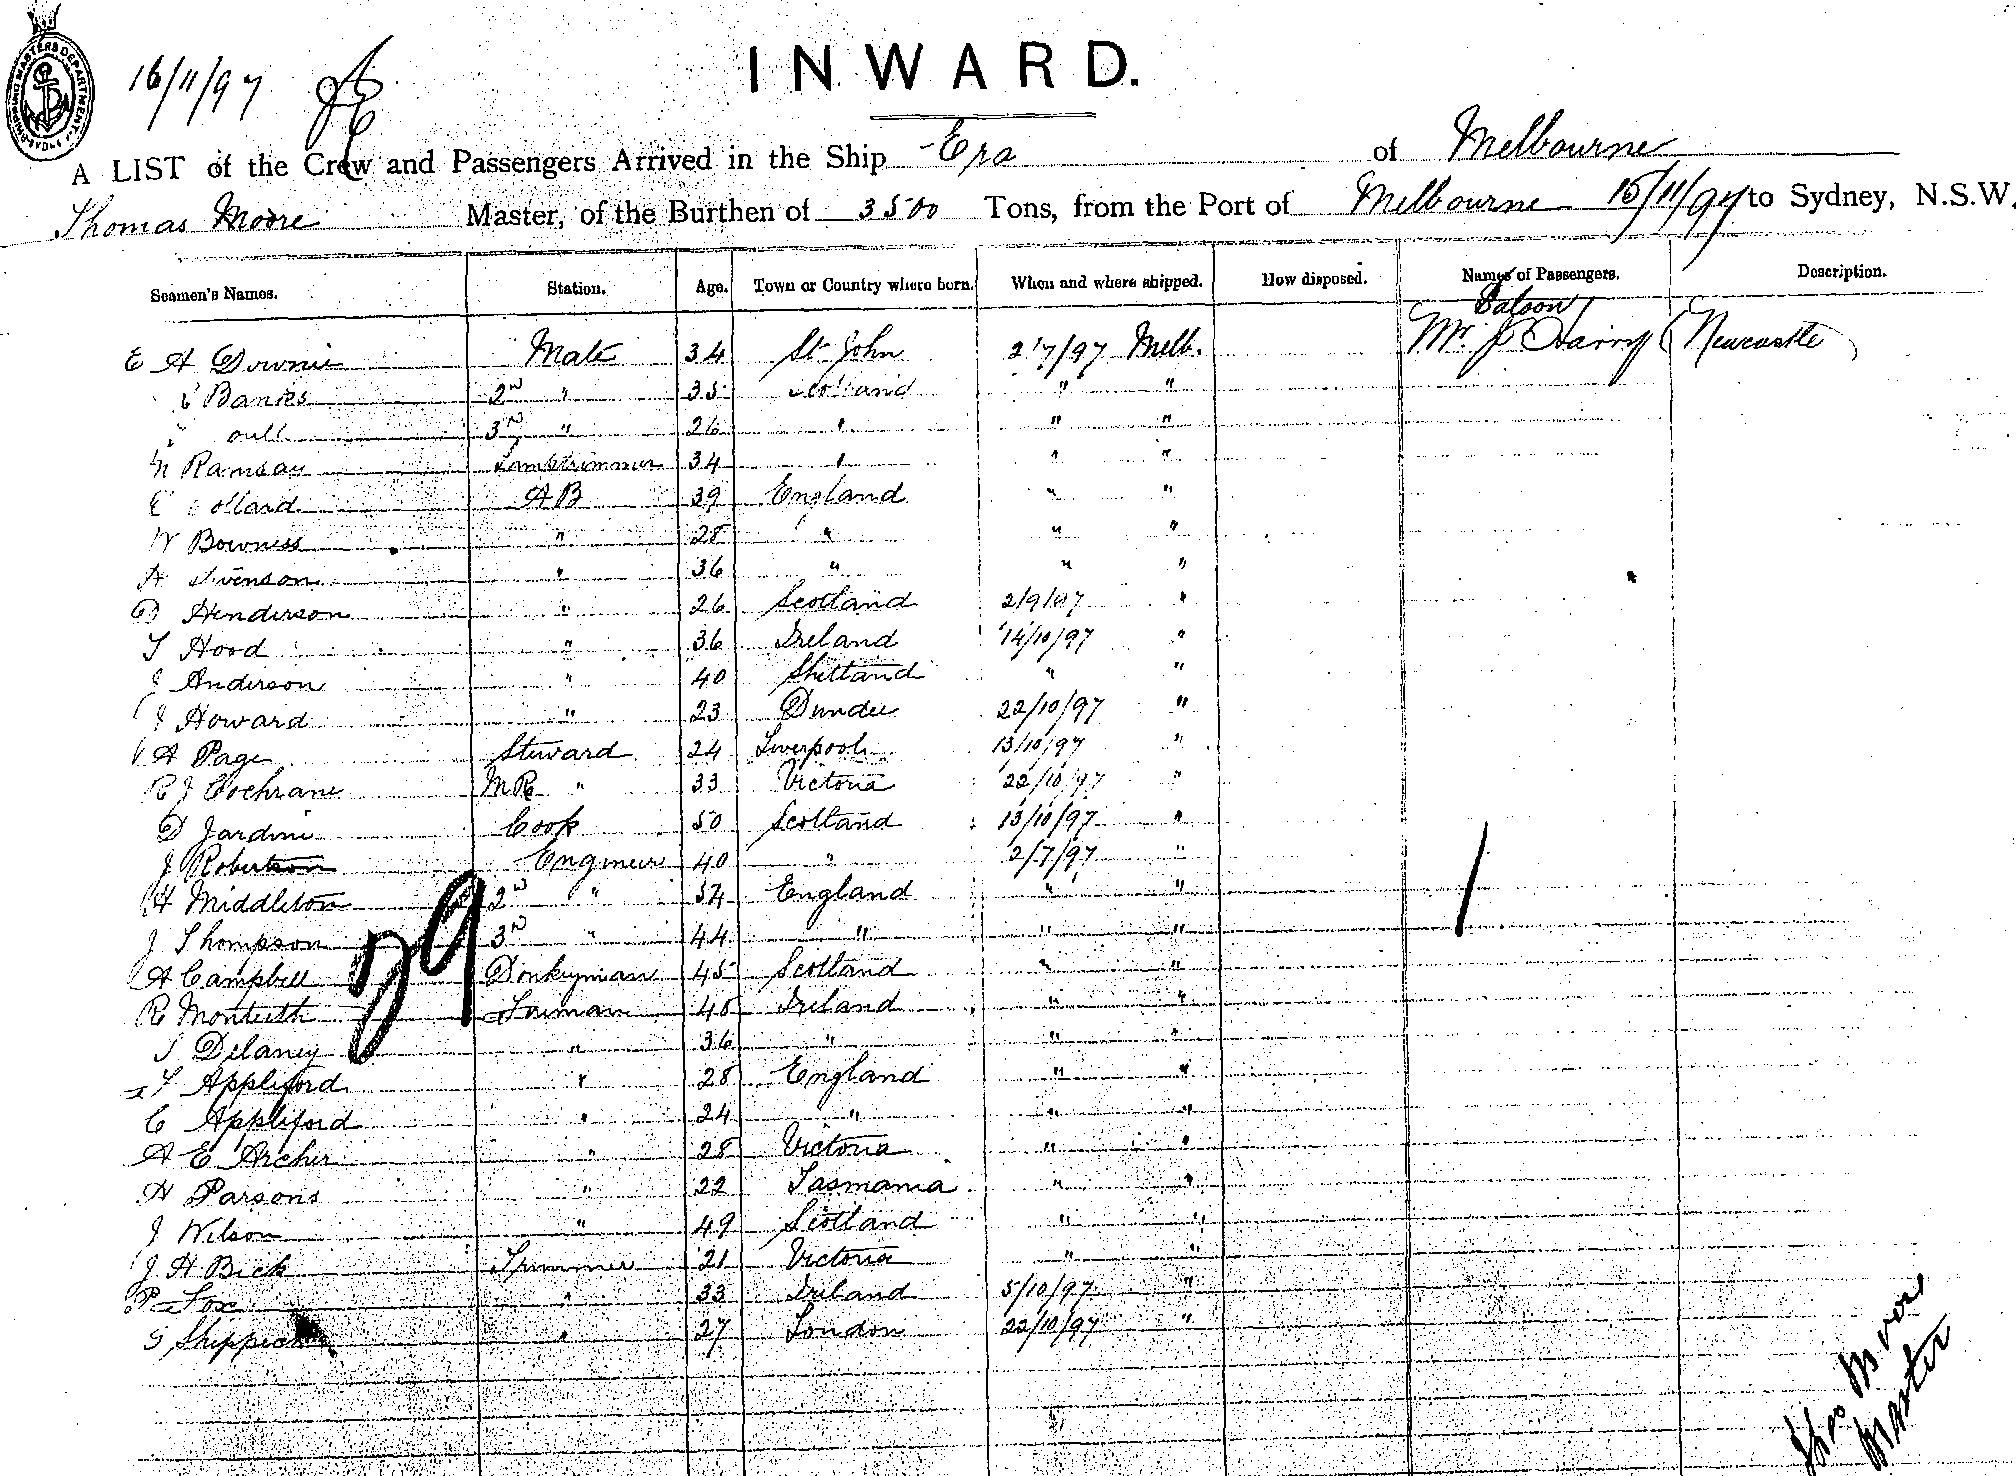 SHIPPING MASTERS DEPARTMENT SYDNEY
16/11/97
INWARD.
A LIST of the Crew and Passengers Arrived in the Ship Era of Melbourne
Thomas Moore Master, of the Burthen of 3500 Tons, from the Port of Melbourne 15/11/97 to Sydney, N.S.W.
Seamen's Names. Station. Age. Town or Country where born. When and where shipped. How disposed. Names of Passengers. Description.
Saloon
E A Downie Mate 34 St John 2/7/97 Melb. Mr J Newcastle
Banks 2nd " 35 Scotland " "
3rd " 26 " " "
Ramsay Lamptrimmer 34 " " "
E AB 39 England " "
W Bowness " 28 " " "
A " 36 " " "
D Henderson " 26 Scotland 2/9/97 "
T Hood " 36 Ireland 14/10/97 "
J Anderson " 40 Shetland " "
J Howard " 23 Dundee 22/10/97 "
A Page Steward 24 Liverpool 13/10/97 "
R J Cochrane M R " 33 Victoria 22/10/97 "
D Jardine Cook 50 Scotland 13/10/97 "
J Robertson Engineer 40 " 2/7/97 "
H Middleton 2nd " 54 England " "
J Thompson 3rd " 44 " " "
A Campbell Donkeyman 45 Scotland " "
29
R Monteith Fireman 48 Ireland " "
J Delaney " 36 " " "
F Appleford " 28 England " "
C Appleford " 24 " " "
A E Archer " 28 Victoria " "
H Parsons " 22 Tasmania " "
J Wilson " 49 Scotland " "
J H Bick Trimmer 21 Victoria " "
P Fox " 33 Ireland 5/10/97 "
G " 27 London 22/10/97 "
1
Thos Moore
Master